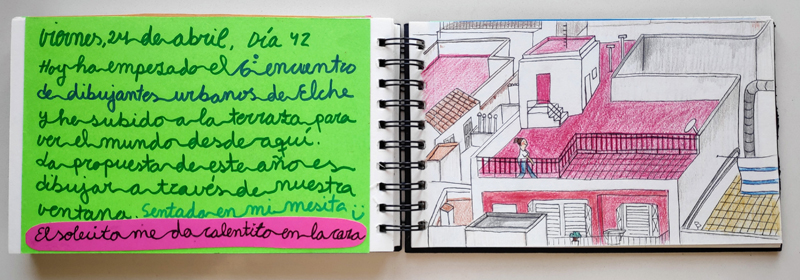 viernes, 24 de abril, Día 42
Hoy ha empezado el 6º encuentro
de dibujantes urbanos de Elche
y he subido a la terraza para
ver el mundo desde aquí.
La propuesta de este año es
dibujar a través de nuestra
ventana. Sentada en mi mesita
El solecito me da calentito en la cara